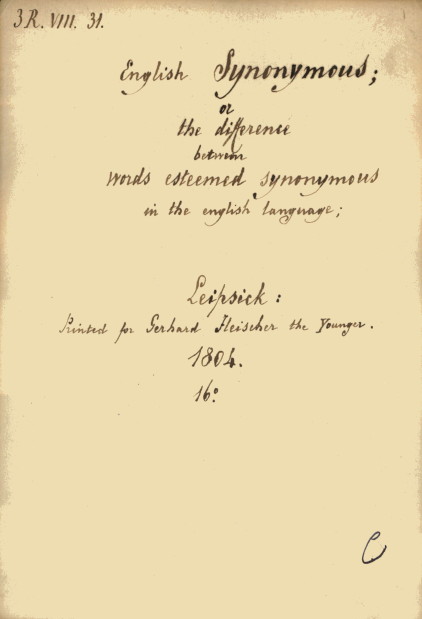 3 R. VIII. 31.
English Synonymous;
or
the difference
between
words esteemed synonymous
in the english language;
Leipsick:
Printed for Gerhard Fleischer the Younger.
1804.
16º
C